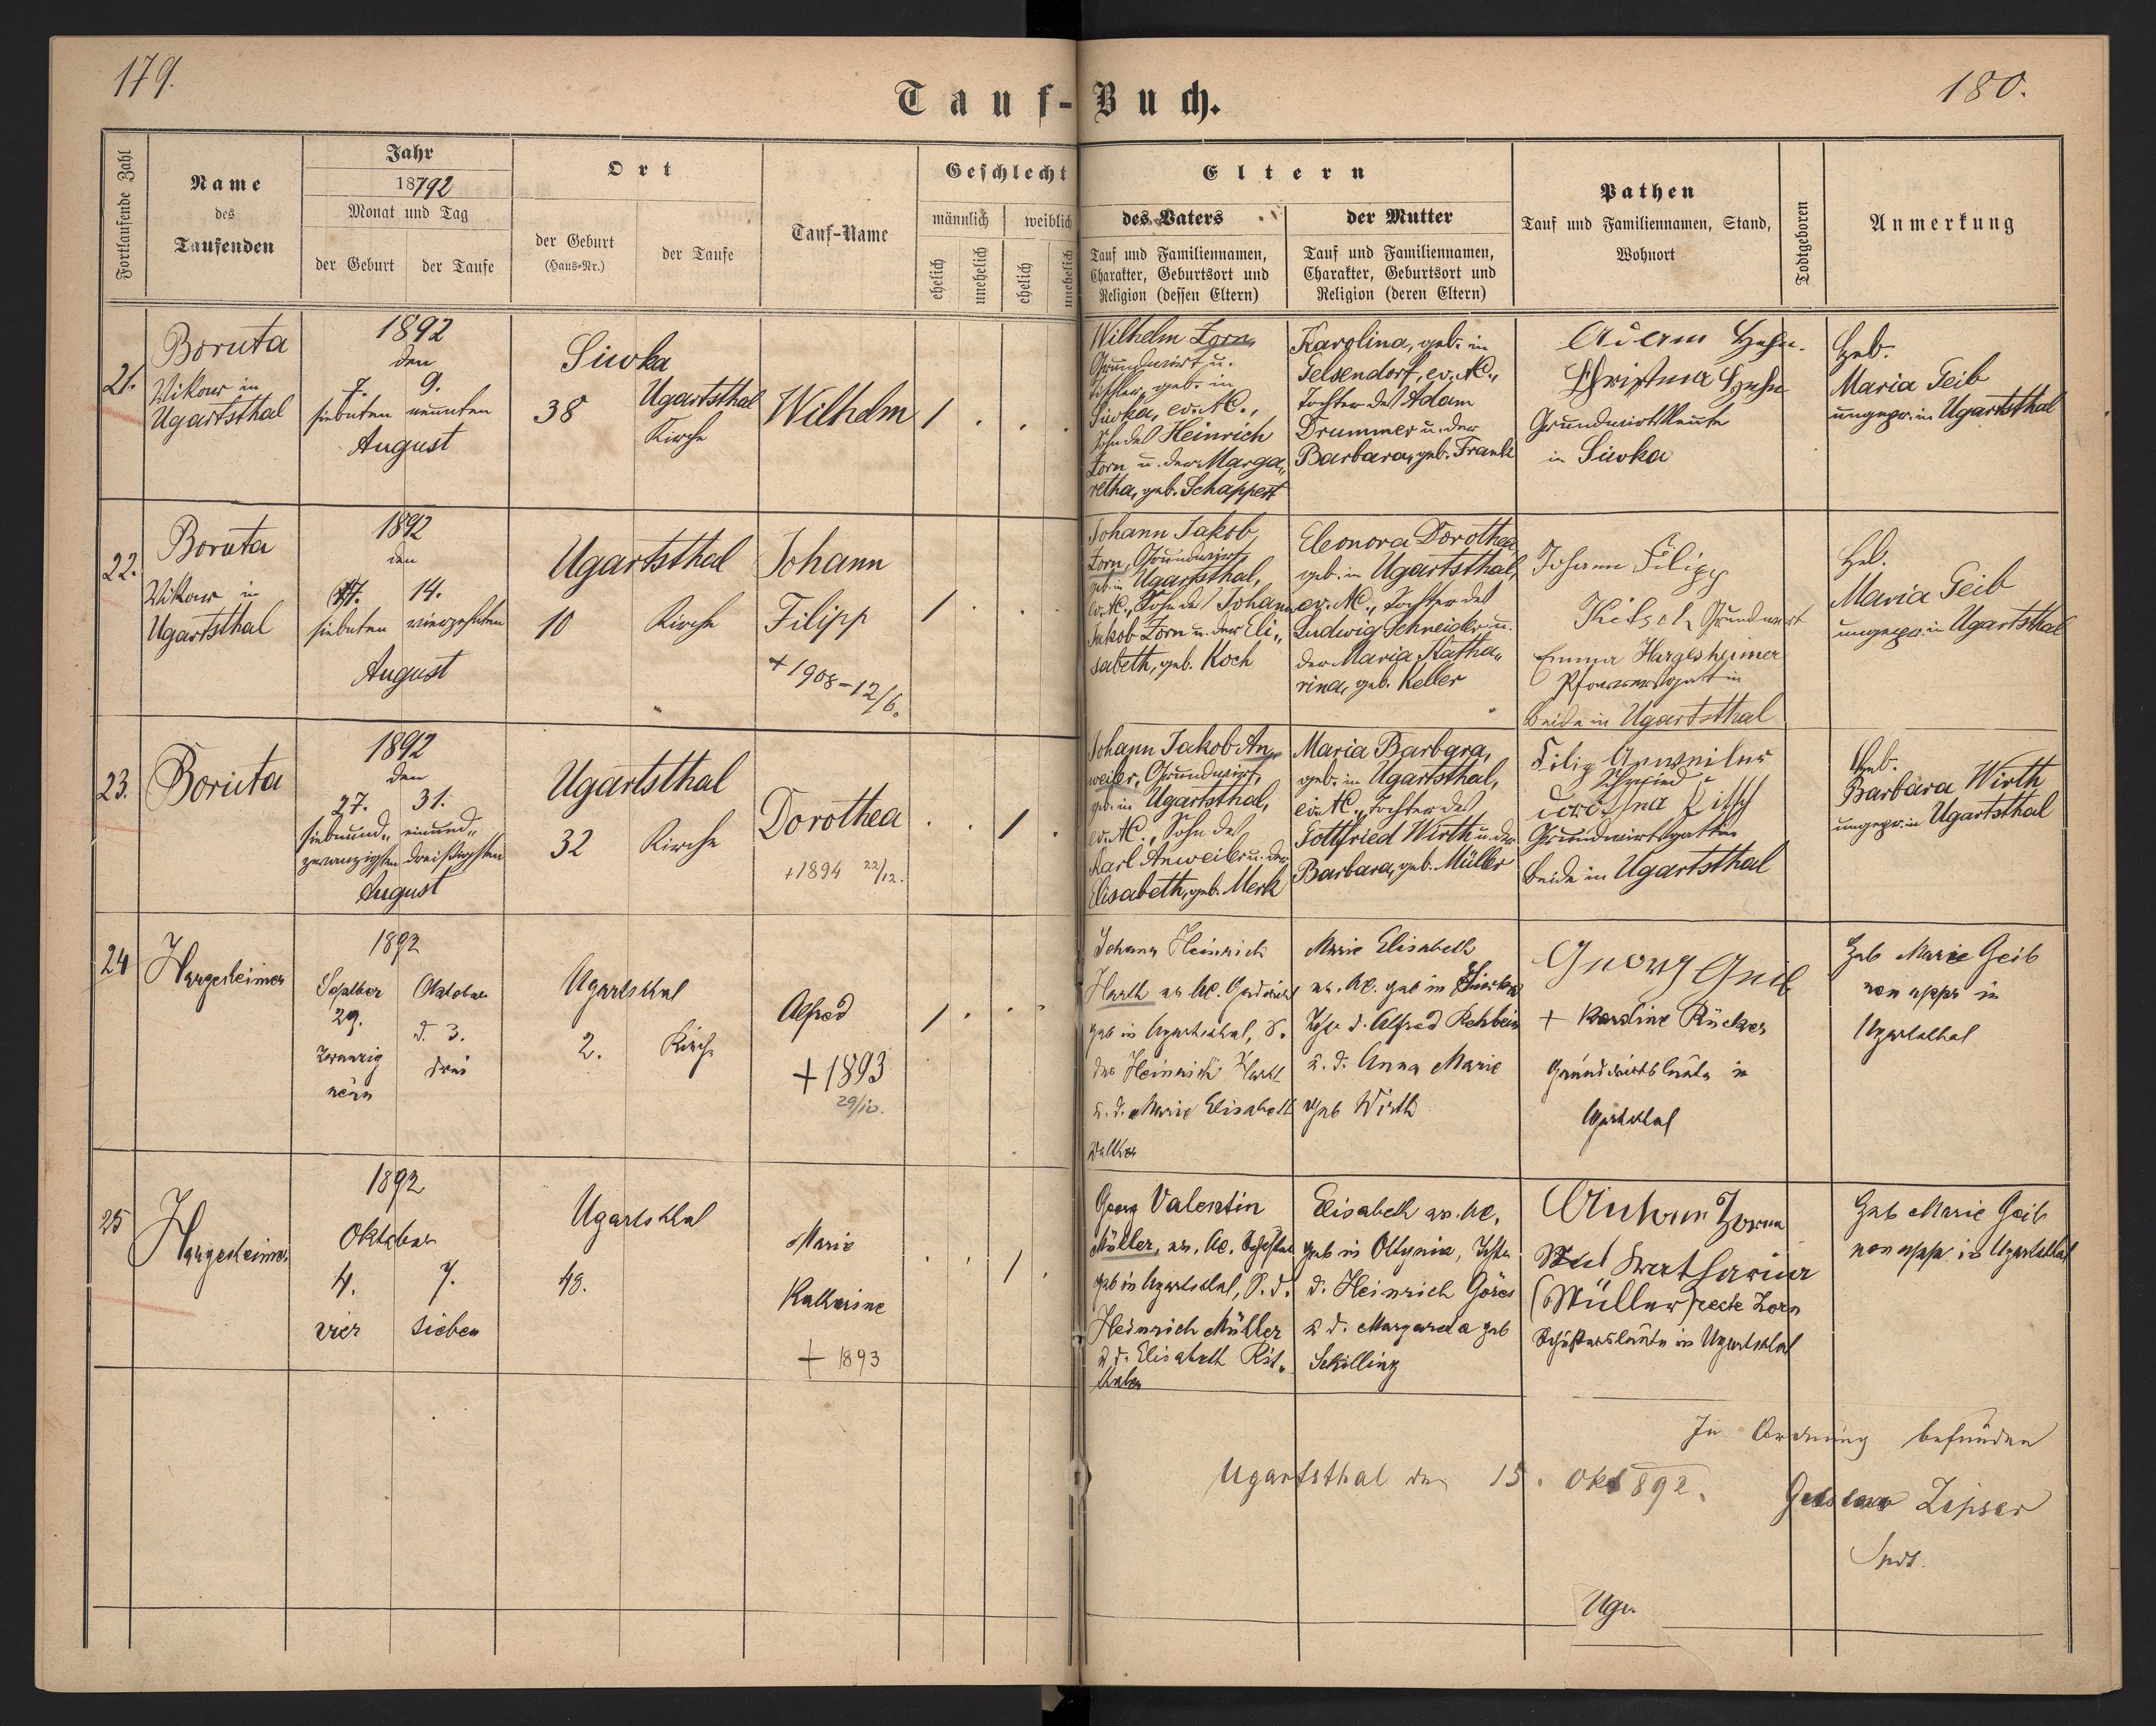 179.
180.
Tauf-Buch.
Fortlaufende Zahl
Name
des
Taufenden
Jahr
18792
Monat und Tag
der Geburt
der Taufe
Ort
der Geburt
(Haus-Nr.)
der Taufe
Tauf-Name
Geschlecht
männlich
weiblich
ehelich
unehelich
ehelich
unehelich
Eltern
des Vaters
Tauf und Familiennamen,
Charakter, Geburtsort und
Religion (dessen Eltern)
der Mutter
Tauf und Familiennamen,
Charakter, Geburtsort und
Religion (deren Eltern)
Pathen
Tauf und Familiennamen, Stand,
Wohnort
Todtgeboren
Anmerkung
21.
Boruta
Vikar in
Ugartsthal
1892
den
7. 9.
siebenten neunten
August
Siwka
38
Ugartsthal
Kirche
Wilhelm
1 . . .
Wilhelm Zorn,
Grundwirt u.
Tischler, geb. in
Siwka, ev. A.C.,
Sohn des Heinrich
Zorn u. der Marga„
retha, geb. Schappert
Karolina, geb. in
Felsendorf, ev. A.C.,
Tochter des Adam
Drummer u. der
Barbara, geb. Frank
Adam Hehn
Christina Hehn
Grundwirtsleute
in Siwka
Heb.
Maria Geib
ungepr. in Ugartsthal
22.
Boruta
Vikar in
Ugartsthal
1892
den
7. 14.
siebenten vierzehnten
August
Ugartsthal
10
Kirche
Johann
Filipp
+ 1908-12/6.
1 . . .
Johann Jakob
Zorn, Grundwirt,
geb. in Ugartsthal,
ev. A.C., Sohn des Johann
Jakob Zorn u. der Eli„
sabeth, geb. Koch
Eleonora Dorothea,
geb. in Ugartsthal,
ev. A.C., Tochter des
Ludwig Schneider u.
der Maria Katha„
rina, geb. Keller
Johann Filipp
Kitsch Grundwirt
Emma Hargesheimer
Pfarrersgattin
beide in Ugartsthal
Heb.
Maria Geib
ungepr. in Ugartsthal
23.
Boruta
1892
den
27. 31.
siebenund„ einund„
zwanzigsten dreißigsten
August
Ugartsthal
32
Kirche
Dorothea
+1894 22/12.
. . 1 .
Johann Jakob An„
weiler, Grundwirt,
geb. in Ugartsthal,
ev. A.C., Sohn des
Karl Anweiler u. der
Elisabeth, geb. Merk
Maria Barbara,
geb. in Ugartsthal,
ev. A.C., Tochter des
Gottfried Wirth u. der
Barbara, geb. Müller
Filip Anweiler
Schmied
Dorothea Kitsch
Grundwirtsgattin
beide in Ugartsthal
Heb.
Barbara Wirth
ungepr. in Ugartsthal
24
Hargesheimer
1892
Septber Oktober
29. d. 3.
zwanzig drei
neun
Ugartsthal
2.
Kirche
Alfred
+ 1893
29/10.
1 . . .
Johann Heinrich
Harth ev. AC. Grundwirt
geb in Ugartsthal, S.
des Heinrich Harth
u. d. Marie Elisabeth
Walker
Marie Elisabeth
ev. AC. geb in Siwka
d. Alfred Rehbein
u. d. Anna Marie
geb Wirth
Georg Geib
+ Karoline Rücker
Grundwirtsleute in
Ugartsthal
Heb Marie Geib
non appr in
Ugartsthal
25
Hargesheimer
1892
Oktober
4. 7.
vier sieben
Ugartsthal
48.
Marie
Katharine
+ 1893
. . 1 .
Georg Valentin
Müller, ev. AC.
geb in Ugartsthal, S. d.
Heinrich Müller
u. d. Elisabeth
Elisabeth ev. AC.
geb in Ottynia,
d. Heinrich Göres
u d. Margareta geb
Schilling
Zorn
Katharina
(Müller) recte Zorn
in Ugartsthal
Heb Marie Geib
non appr. in Ugartsthal
In Ordnung befunden
Ugartsthal den 15. Okt 892.
Zipser
Ugar